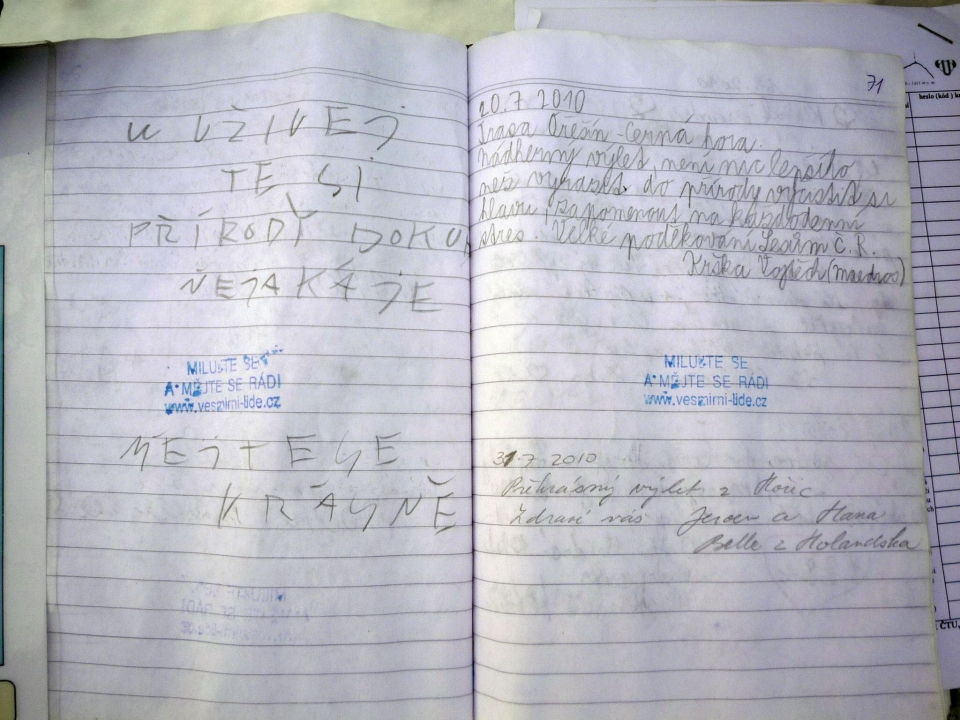 U UŽÍVEJ
TE SI
PŘÍRODY DOKUD
NĚJAKÁ JE
MILUJTE SE
A MĚJTE SE RÁDI
www.vesmirni-lide.cz
MĚJTE SE
KRÁSNĚ
71
20.7 2010
Trasa Ořešín - Černá hora.
Nádherný výlet, není nic lepšího
než vyrazit do přírody vyčistit si
hlavu, zapomenout na každodenní
stres. Velké poděkování Lesům Č.R.
Krška Vojtěch
MILUJTE SE
A MĚJTE SE RÁDI
www.vesmirni-lide.cz
31.7 2010
Překrásný výlet z Hořic
Zdraví vás Jeroen a Hana
Belle z Holandska
heslo (kód) k